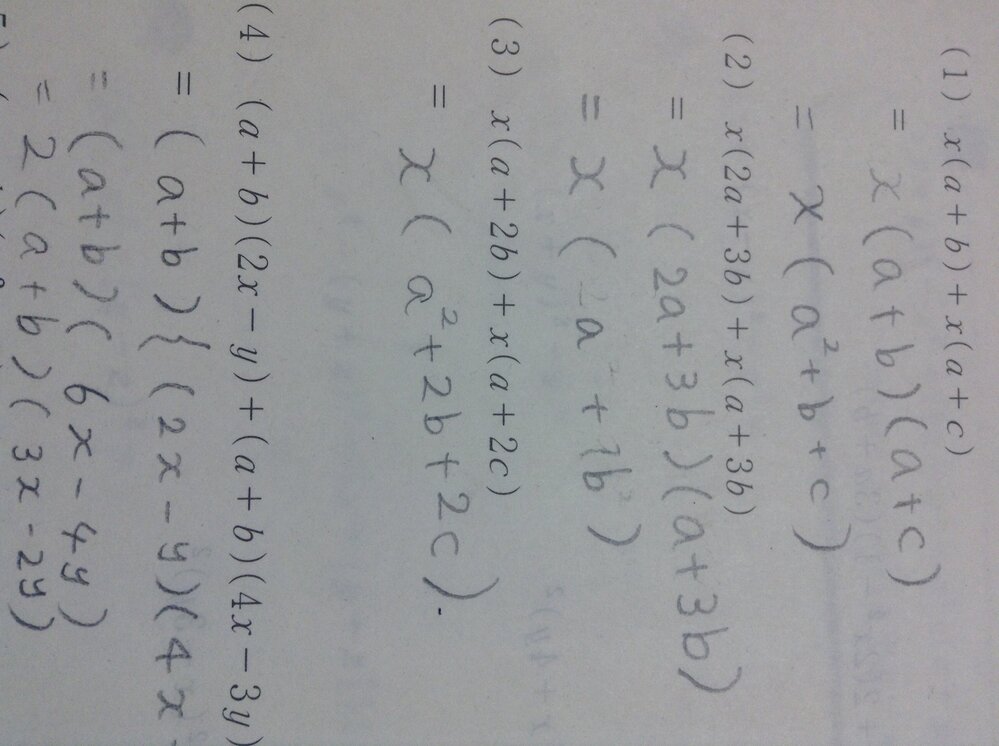 (1) x(a+b)+x(a+c)
= x(a+b)(a+c)
= x(a²+b+c)
(2) x(2a+3b)+x(a+3b)
= x(2a+3b)(a+3b)
= x(2a²+7b²)
(3) x(a+2b)+x(a+2c)
= x(a²+2b+2c).
(4) (a+b)(2x-y)+(a+b)(4x-3y)
= (a+b){(2x-y)(4x-
= (a+b)(6x-4y)
= 2(a+b)(3x-2y)